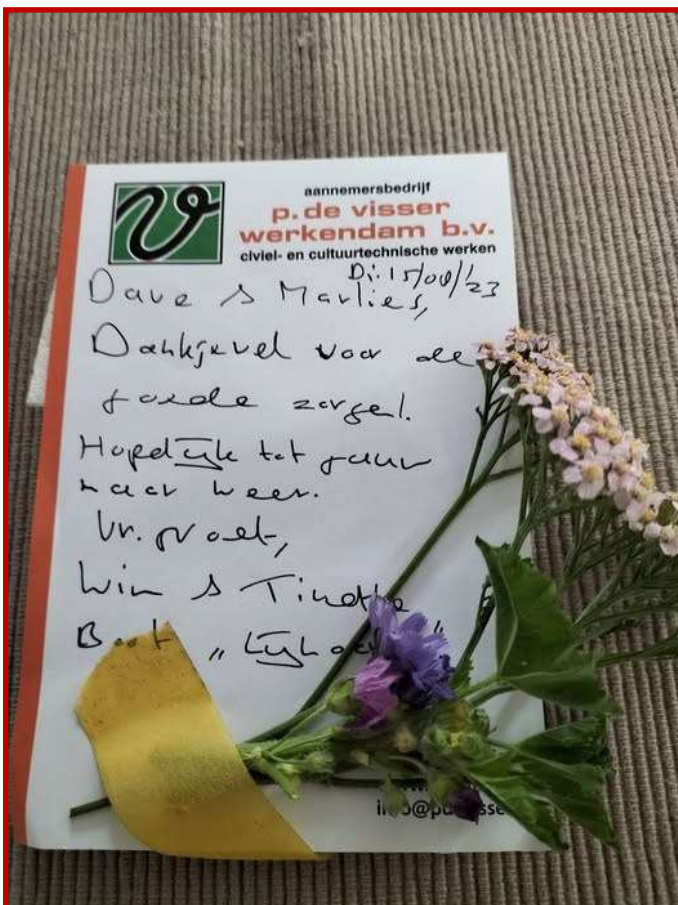 aannemersbedrijf
p. de visser
werkendam b.v.
civiel- en cultuurtechnische werken
Di: 15/08/'23
Dave & Marlies,
Dankjevel voor de
goede zorgen!
Hopelijk tot gauw
naar weer.
Vr. groet,
Wim &
Boot „